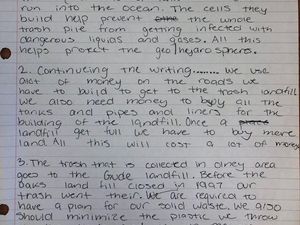 run into the ocean. The cells they
build help prevent the whole
trash pile from getting infected with
dangerous liquids and gases. All this
helps protect the geo/hydrosphere.
2. Continuing the writing........ we use
alot of money on the roads we
have to build to get to the trash landfill
we also need money to buply all the
tanks and pipes and liners for the
building of the landfill. Once a
landfill get full we have to buy more
land. All this will cost a lot of money
3. The trash that is collected in olney area
goes to the Gude landfill. Before the
Oaks land fill closed in 1997 our
trash went their. We are required to
have a plan for our solid waste. We also
should minimize the plastic we throw